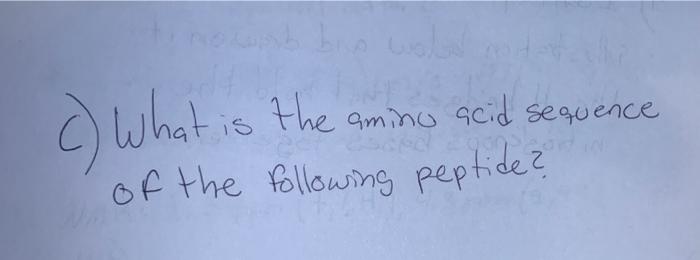 c) What is the amino acid sequence
of the following peptide?